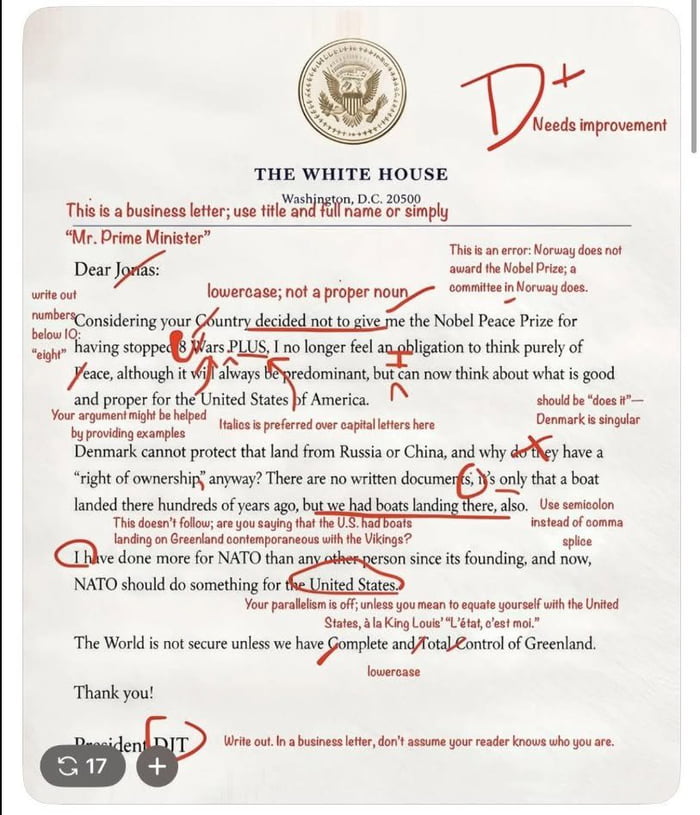 D+
Needs improvement
THE WHITE HOUSE
Washington, D.C. 20500
This is a business letter; use title and full name or simply
"Mr. Prime Minister"
Dear Jonas:
This is an error: Norway does not
award the Nobel Prize; a
committee in Norway does.
lowercase; not a proper noun
write out
numbers
below 10:
"eight"
Considering your Country decided not to give me the Nobel Peace Prize for
having stopped 8 Wars PLUS, I no longer feel an obligation to think purely of
Peace, although it will always be predominant, but can now think about what is good
I
and proper for the United States of America.
should be "does it"—
Denmark is singular
Your argument might be helped
by providing examples
Italics is preferred over capital letters here
Denmark cannot protect that land from Russia or China, and why do they have a
"right of ownership" anyway? There are no written documents, it's only that a boat
landed there hundreds of years ago, but we had boats landing there, also.
Use semicolon
instead of comma
splice
This doesn't follow; are you saying that the U.S. had boats
landing on Greenland contemporaneous with the Vikings?
I have done more for NATO than any other person since its founding, and now,
NATO should do something for the United States.
Your parallelism is off; unless you mean to equate yourself with the United
States, à la King Louis' "L'état, c'est moi."
The World is not secure unless we have Complete and Total Control of Greenland.
lowercase
Thank you!
President DJT
Write out. In a business letter, don't assume your reader knows who you are.
17